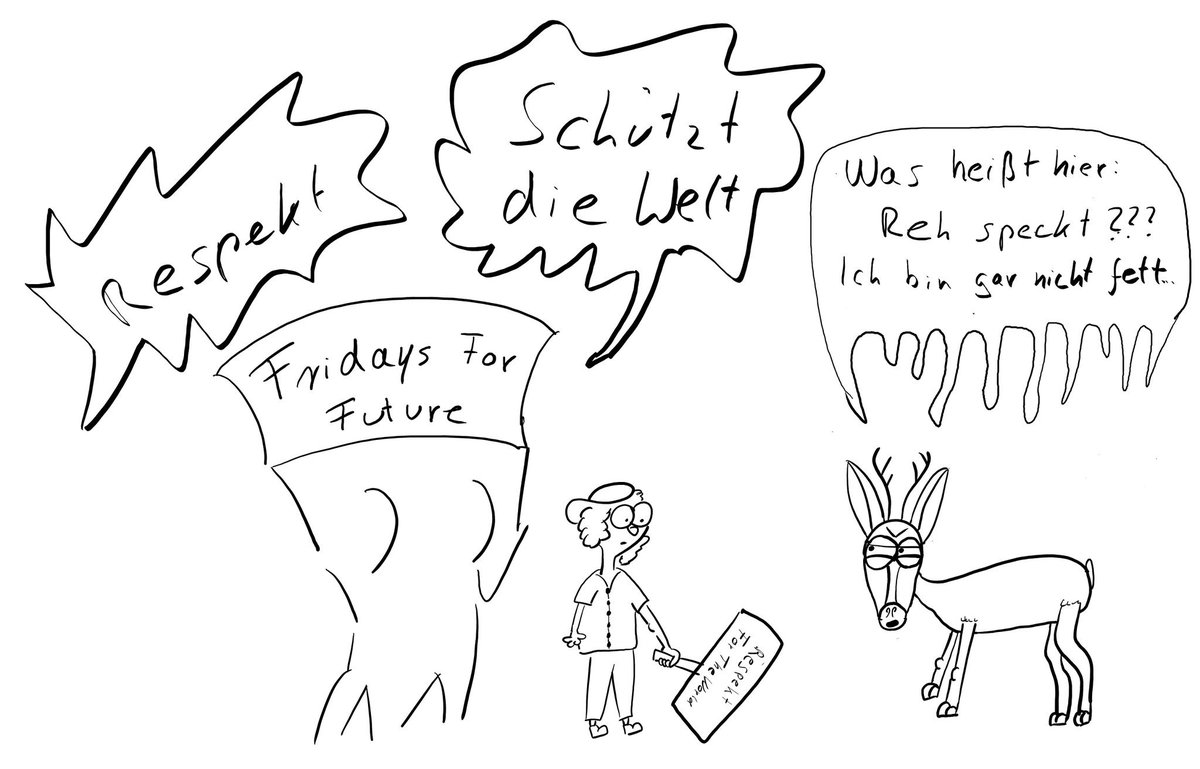 Respekt
Schützt
die Welt
Was heißt hier:
Reh speckt???
Ich bin gar nicht fett...
Fridays For
Future
Respekt
For The World